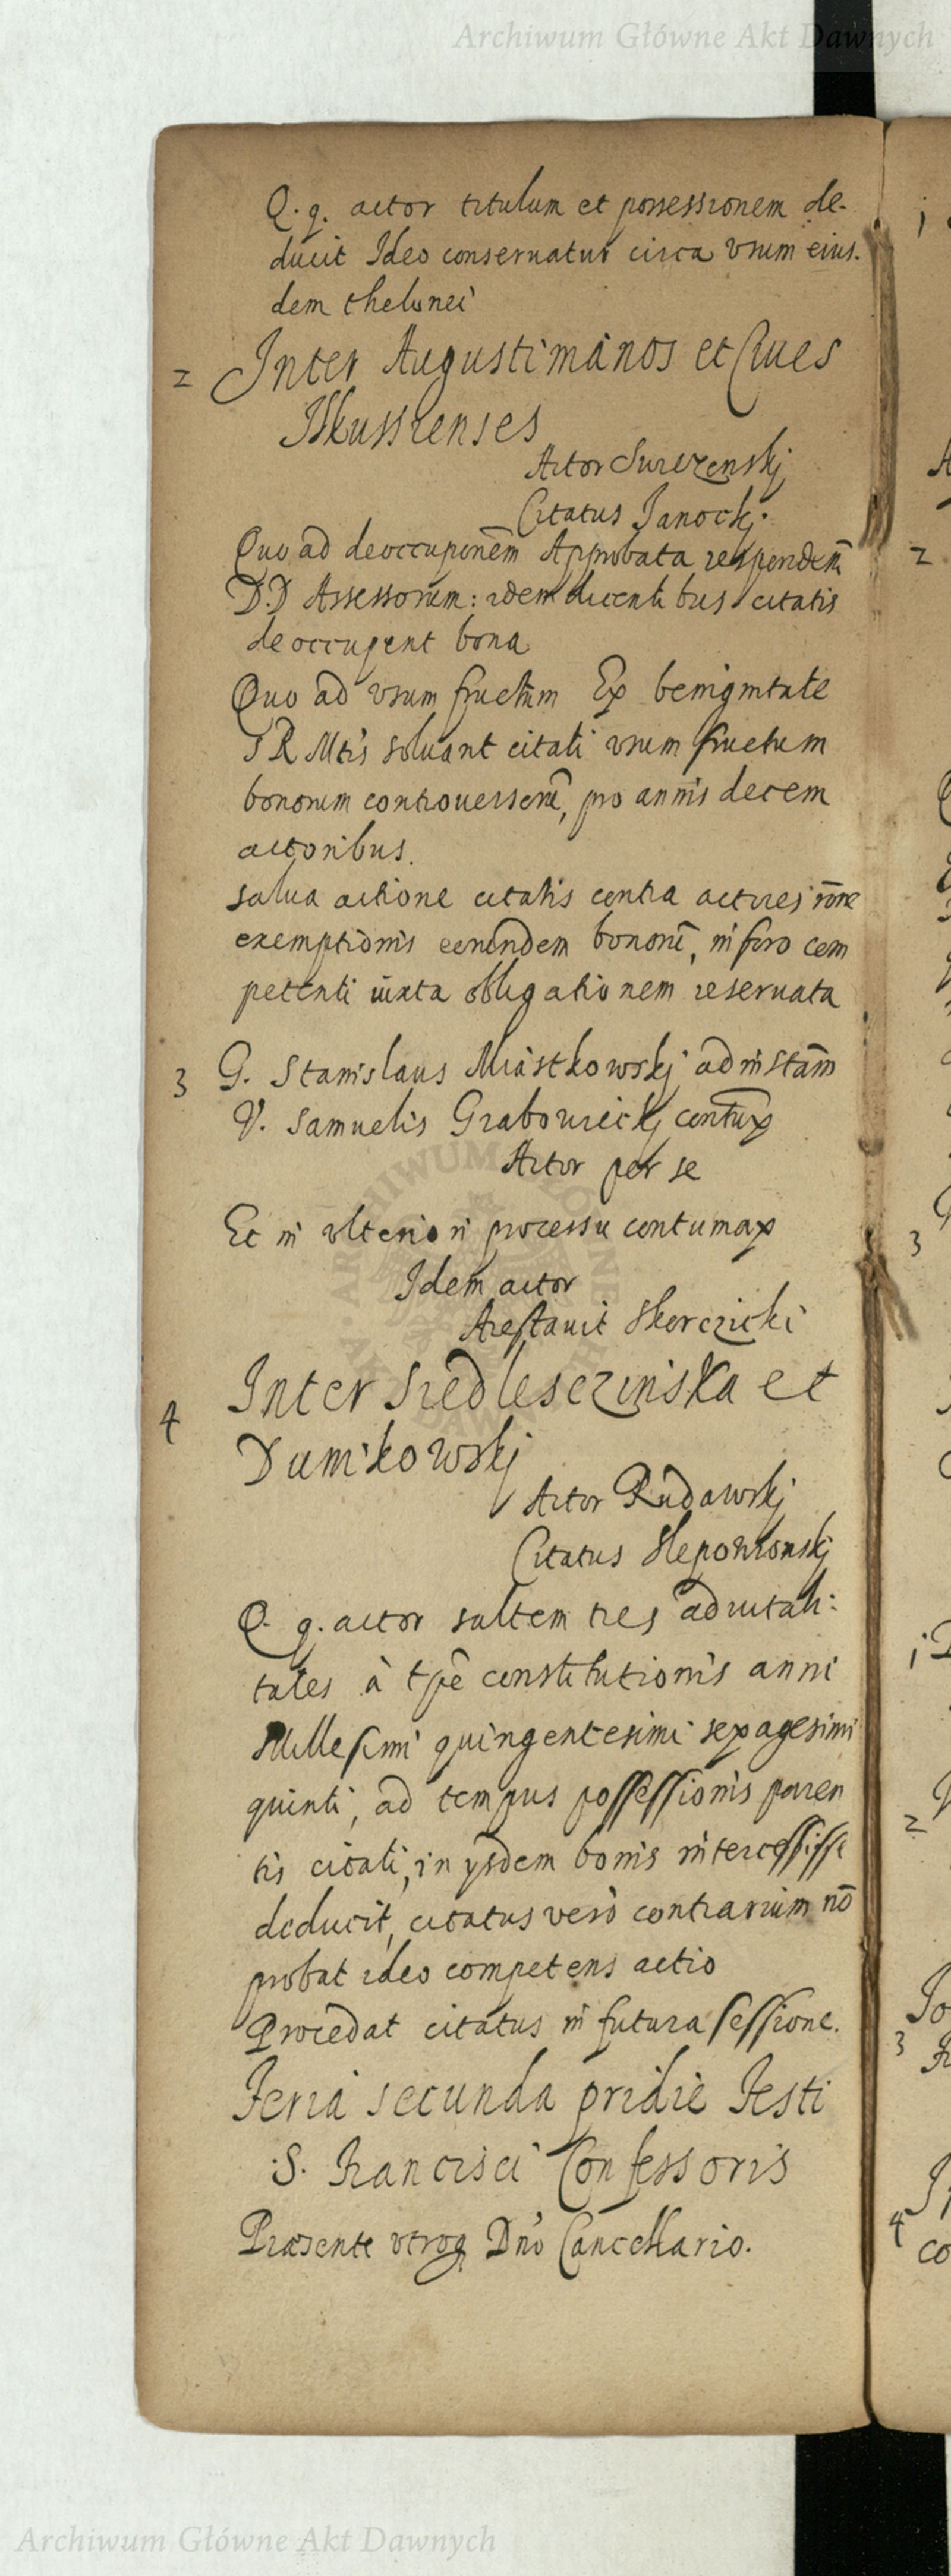 Archiwum Główne Akt Dawnych
Q. q. actor titulum et possessionem de-
ducit Ideo conseruatur circa vsum eius-
dem thelonei
2 Inter Augustinianos et Ciues
Ilkussienses
Actor Surczenskj
Citatus Janockj.
Quo ad deoccuponēm Approbata
D.D Assessorum: idem dicentibus citatis
deoccupent bona
Quo ad vsum fructūm Ex benignitate
S R Mtis soluant citati vsum fructum
bonorum controuersorū, pro annis decem
actoribus.
salua actione citatis contra actores rōne
exemptionis eorundem bonorū, in foro com
petenti iuxta obligationem reseruata
3 G. Stanislaus Miastkowskj ad instām
V. Samuelis Grabowieckj contūx
Actor per se
Et in vlteriori processu contumax
Idem actor
Arestauit Skorczicki
4 Inter Siedlesczinska et
Dunikowskj
Actor Rudawskj
Citatus Slepowronskj
Q. q. actor saltem tres aduitali:
tates à tpē constitutionis anni
Millesimi quingentesimi sexagesimi
quinti, ad tempus possessionis paren
tis citati, in ysdem bonis intercessisse
deducit, citatus verò contrarium nō
probat ideo competens actio
Procedat citatus in futura sessione.
Feria secunda pridie Festi
S. Francisci Confessoris
Præsente vtroq Dnō Cancellario.
Archiwum Główne Akt Dawnych